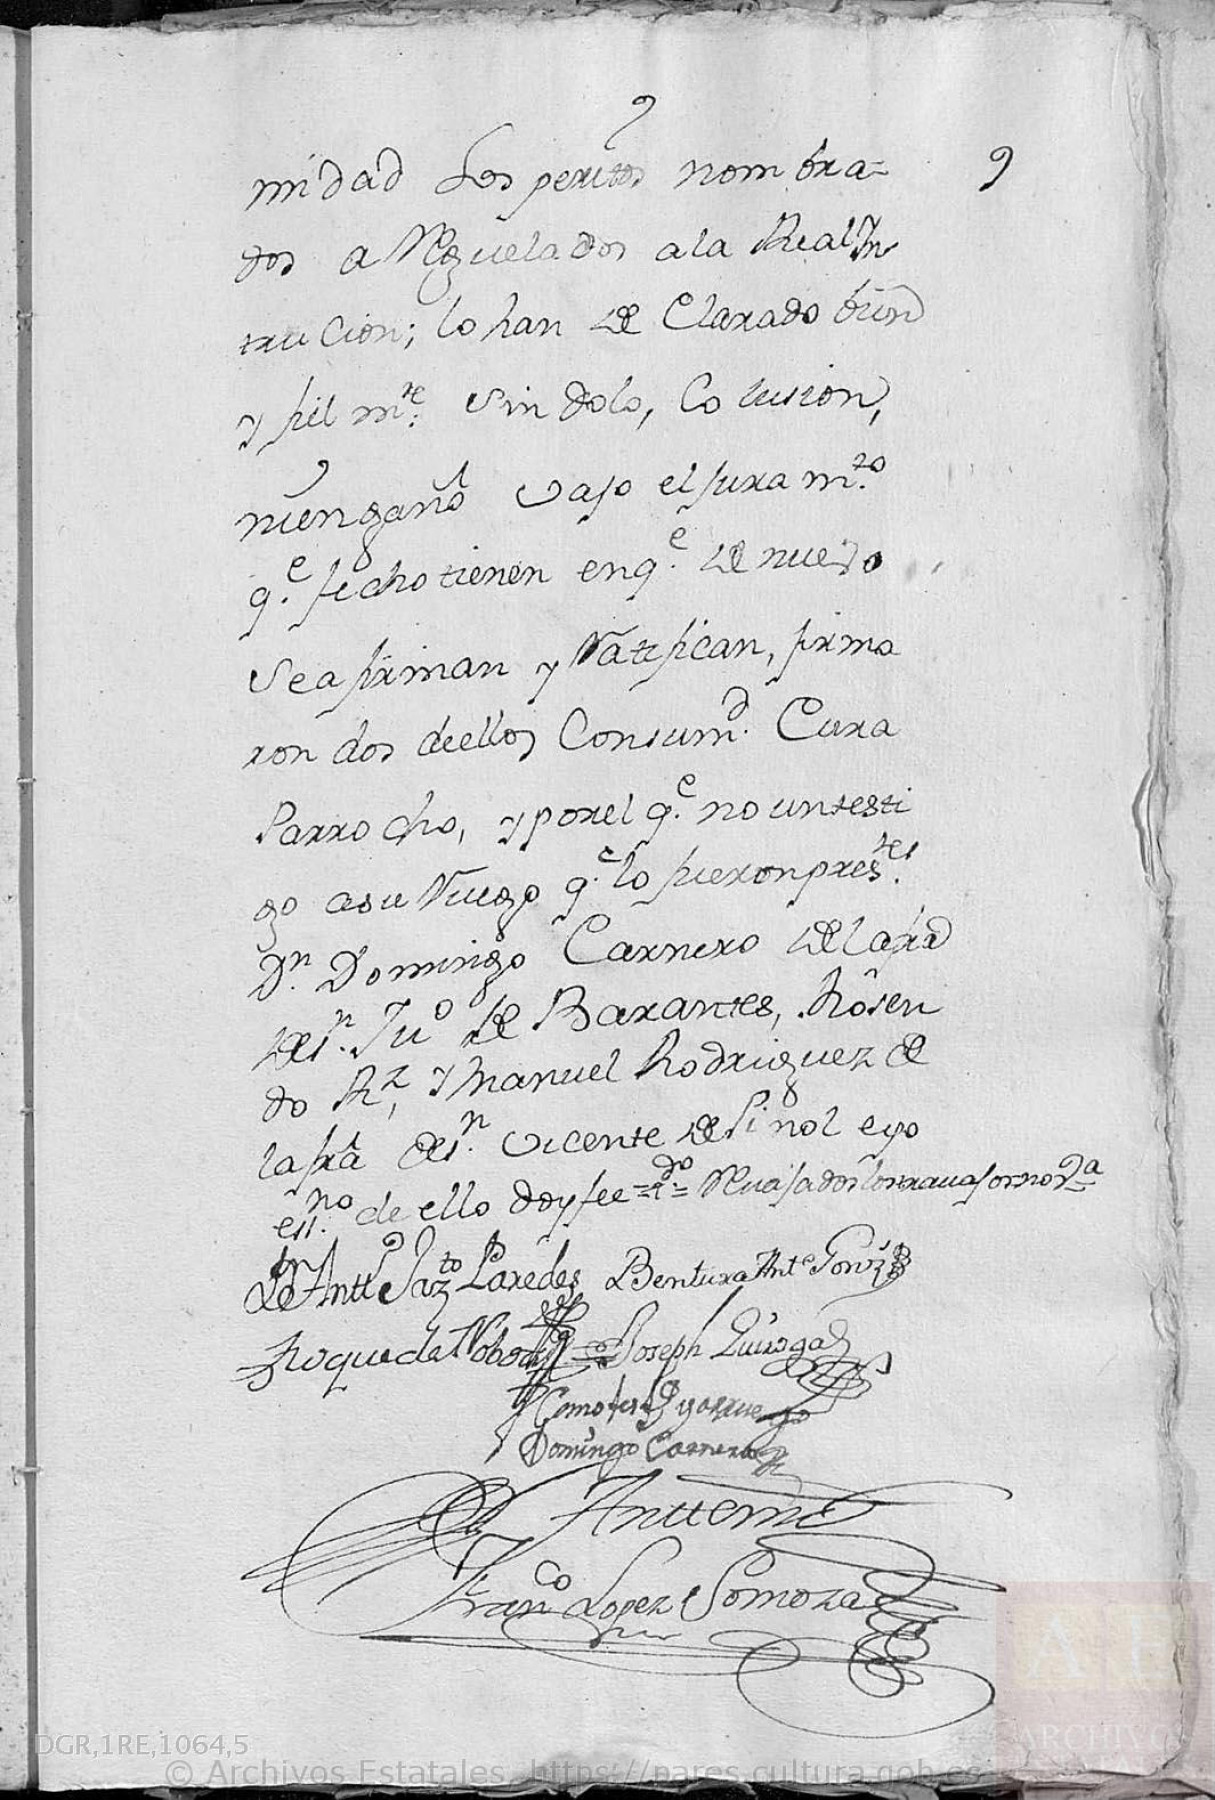 9
midad Los peritos nombra=
9
dos a Reguelados ala Real In
trucion; lo han de Clarado bien
y fiel mte. Sin dolo, Colusion,
niengaño vajo el juramto.
qe. fecho tienen enqe. de nuevo
Seafirman y Ratifican, firma
ron dos deellos Consumd. Cura
Parrocho, y porel qe. no untesti
go asu Ruego qe. lo fueron prestes.
Dn. Domingo Carnero de lafra
desn. Juo de Barantes, Rosen
do Rz, y Manuel Rodriguez de
lafra desn. Vicente de Pinol eyo
essno. de ello doyfee
Paredes Bentura Anto Gonz
Roque de Joseph Quiroga
Como testo yarruego
Domingo Carnero
Antte mi
Franco Lopez Somoza
DGR,1RE,1064,5
© Archivos Estatales, https://pares.cultura.gob.es
AE
ARCHIVOS
ESTATALES